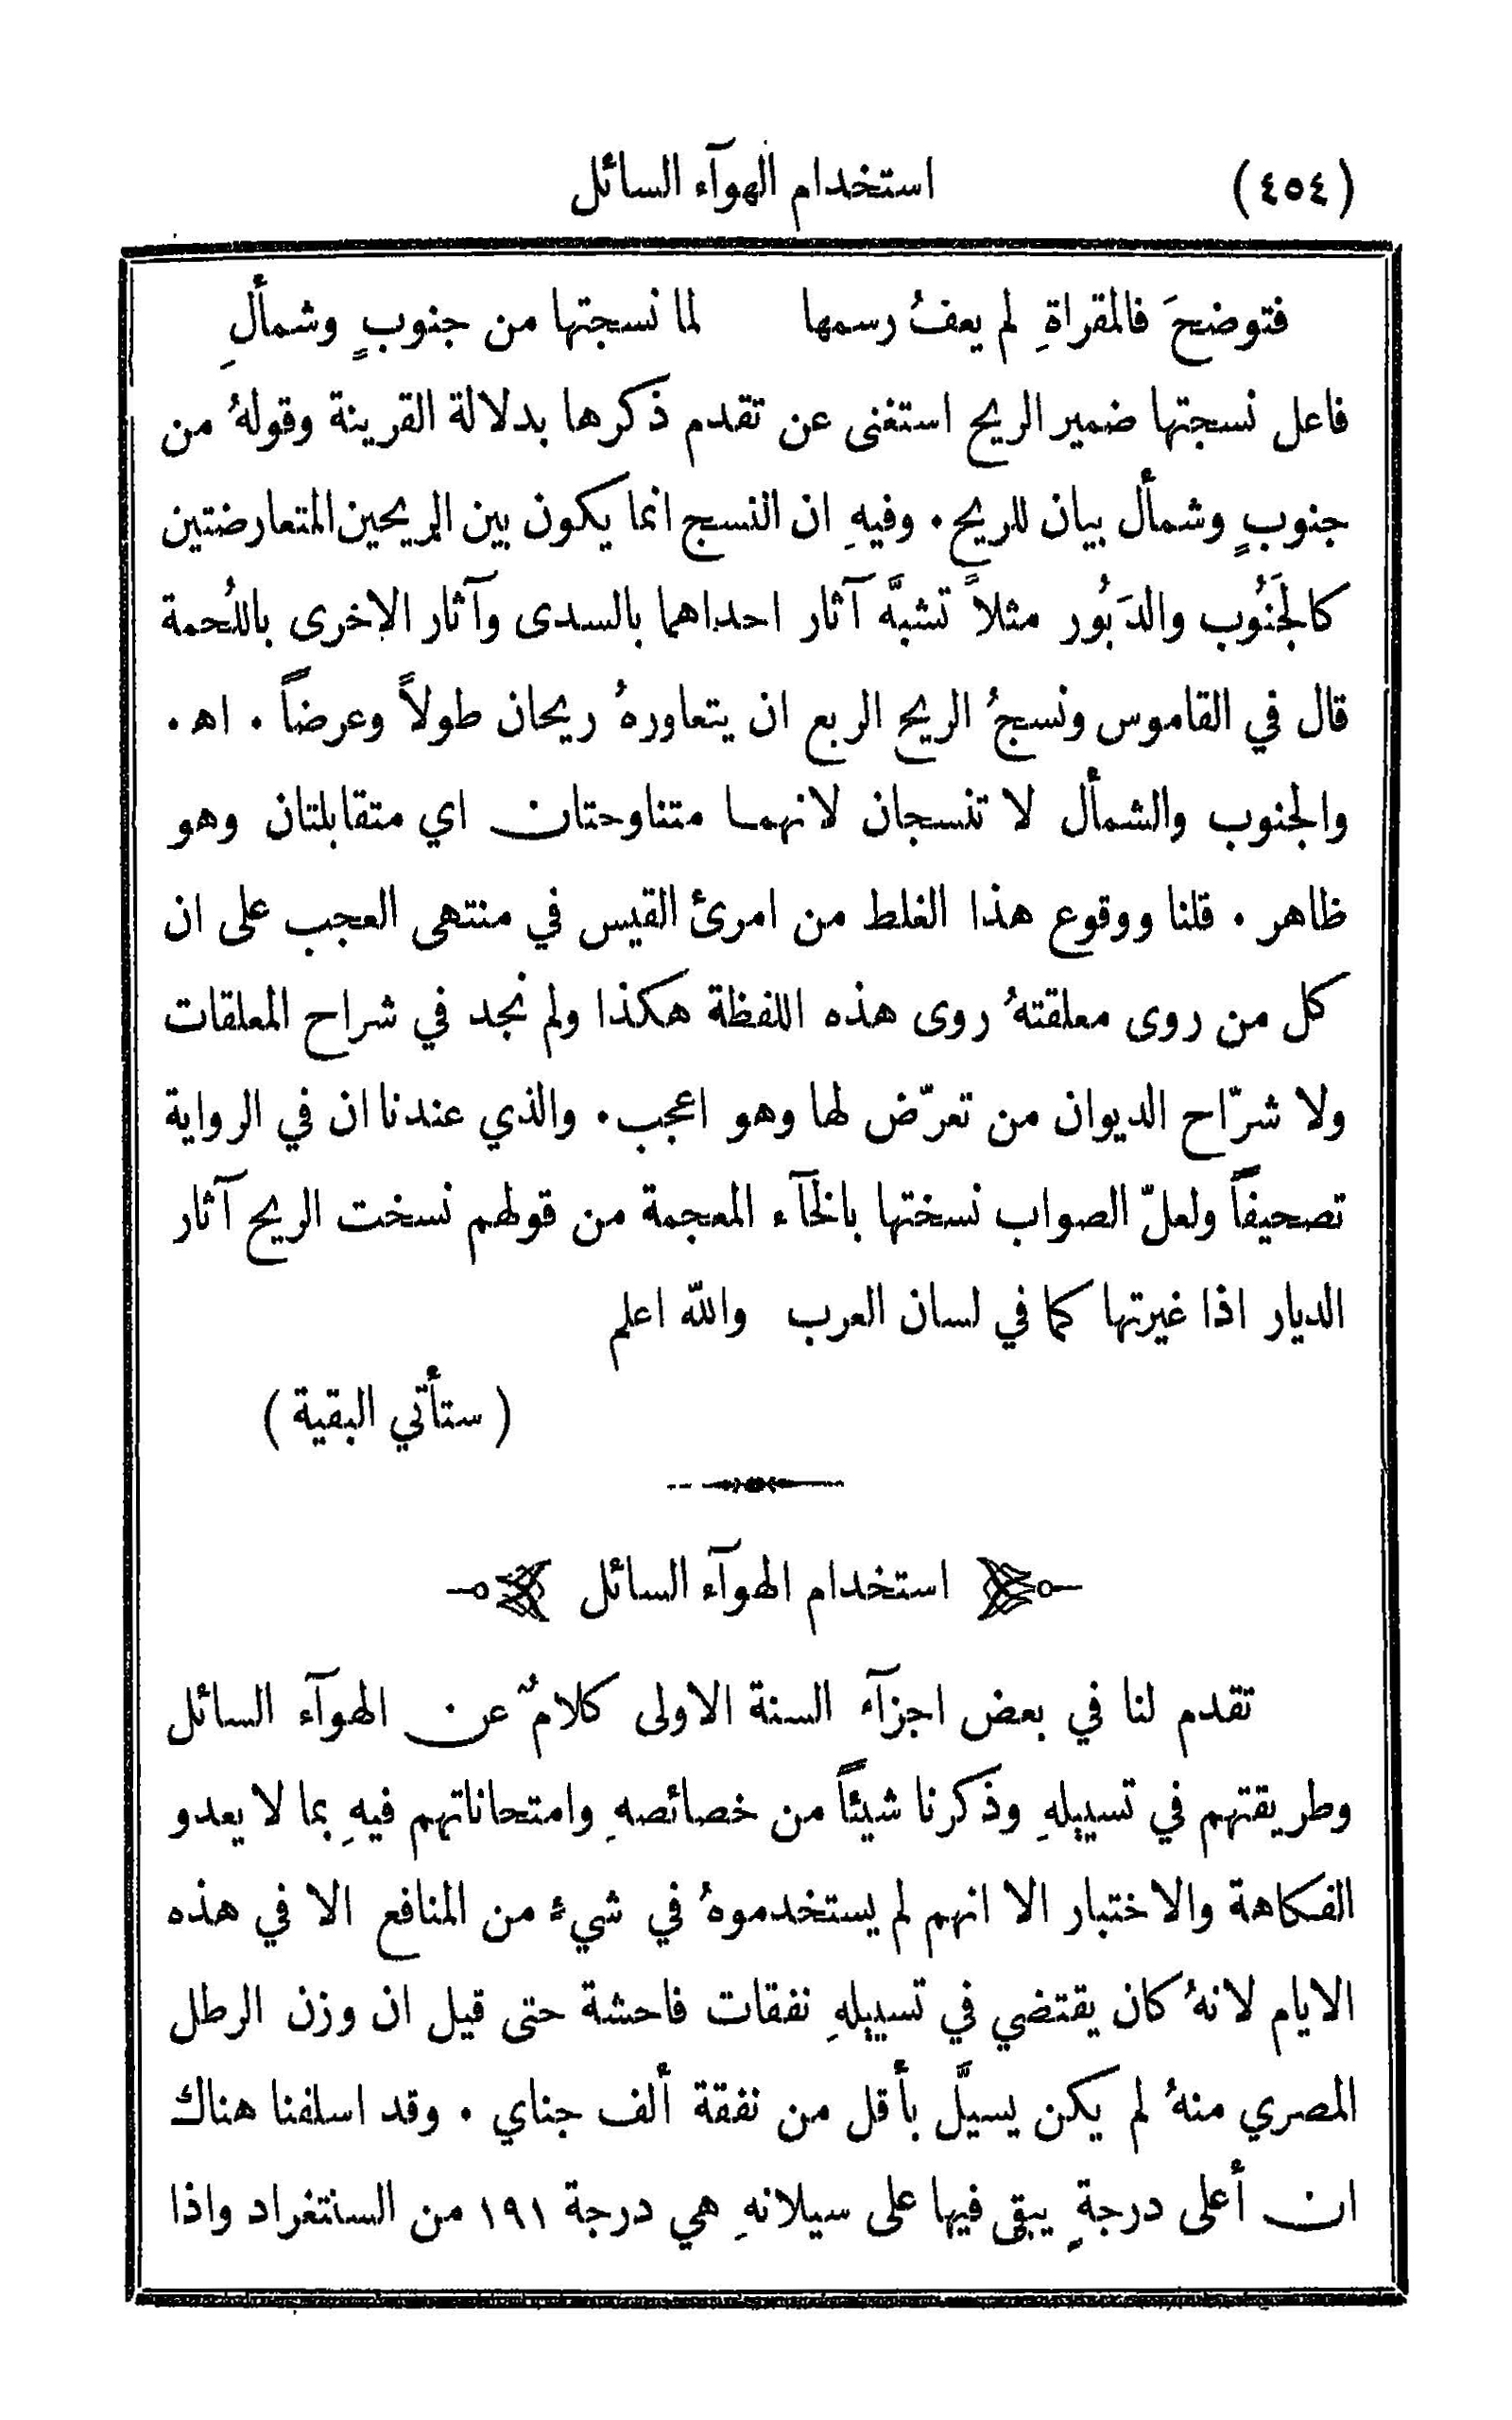 (٤٥٤) استخدام الهوآء السائل
فتوضحَ فالمقراةِ لم يعفُ رسمها لما نسجتها من جنوبٍ وشمألِ
فاعل نسجتها ضمير الريح استغنى عن تقدم ذكرها بدلالة القرينة وقولهُ من
جنوبٍ وشمأل بيان للريح . وفيهِ ان النسج انما يكون بين الريحين المتعارضتين
كالجَنُوب والدَبُور مثلاً تشبَّه آثار احداهما بالسدى وآثار الاخرى باللُحمة
قال في القاموس ونسجُ الريح الربع ان يتعاورهُ ريحان طولاً وعرضاً . اه .
والجنوب والشمأل لا تنسجان لانهما متناوحتان اي متقابلتان وهو
ظاهر . قلنا ووقوع هذا الغلط من امرئ القيس في منتهى العجب على ان
كل من روى معلقتهُ روى هذه اللفظة هكذا ولم نجد في شراح المعلقات
ولا شرّاح الديوان من تعرّض لها وهو اعجب . والذي عندنا ان في الرواية
تصحيفاً ولعلّ الصواب نسختها بالخآء المعجمة من قولهم نسخت الريح آثار
الديار اذا غيرتها كما في لسان العرب والله اعلم
( ستأتي البقية )
استخدام الهوآء السائل
تقدم لنا في بعض اجزآء السنة الاولى كلامٌ عن الهوآء السائل
وطريقتهم في تسييلهِ وذكرنا شيئاً من خصائصهِ وامتحاناتهم فيهِ بما لا يعدو
الفكاهة والاختبار الا انهم لم يستخدموهُ في شيءٍ من المنافع الا في هذه
الايام لانهُ كان يقتضي في تسييلهِ نفقات فاحشة حتى قيل ان وزن الرطل
المصري منهُ لم يكن يسيَّل بأقل من نفقة ألف جناي . وقد اسلفنا هناك
ان أعلى درجةٍ يبقى فيها على سيلانهِ هي درجة ١٩١ من السنتغراد واذا